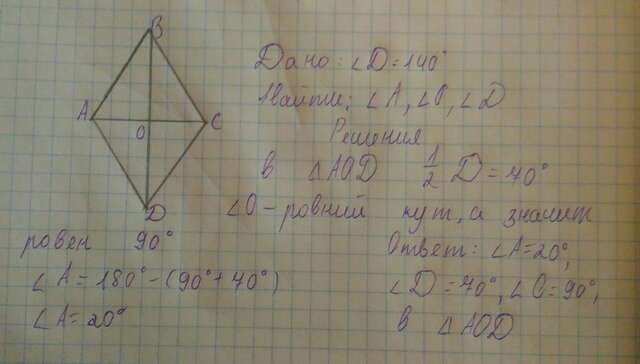 B
A
O
C
D
Дано: ∠D=140°
Найти: ∠A, ∠O, ∠D
Решения
В △AOD 1/2 D=70°
∠O - ровний кут, а значит
ровен 90°
∠A=180°-(90°+70°)
∠A=20°
Ответ: ∠A=20°,
∠D=70°, ∠O=90°,
в △AOD